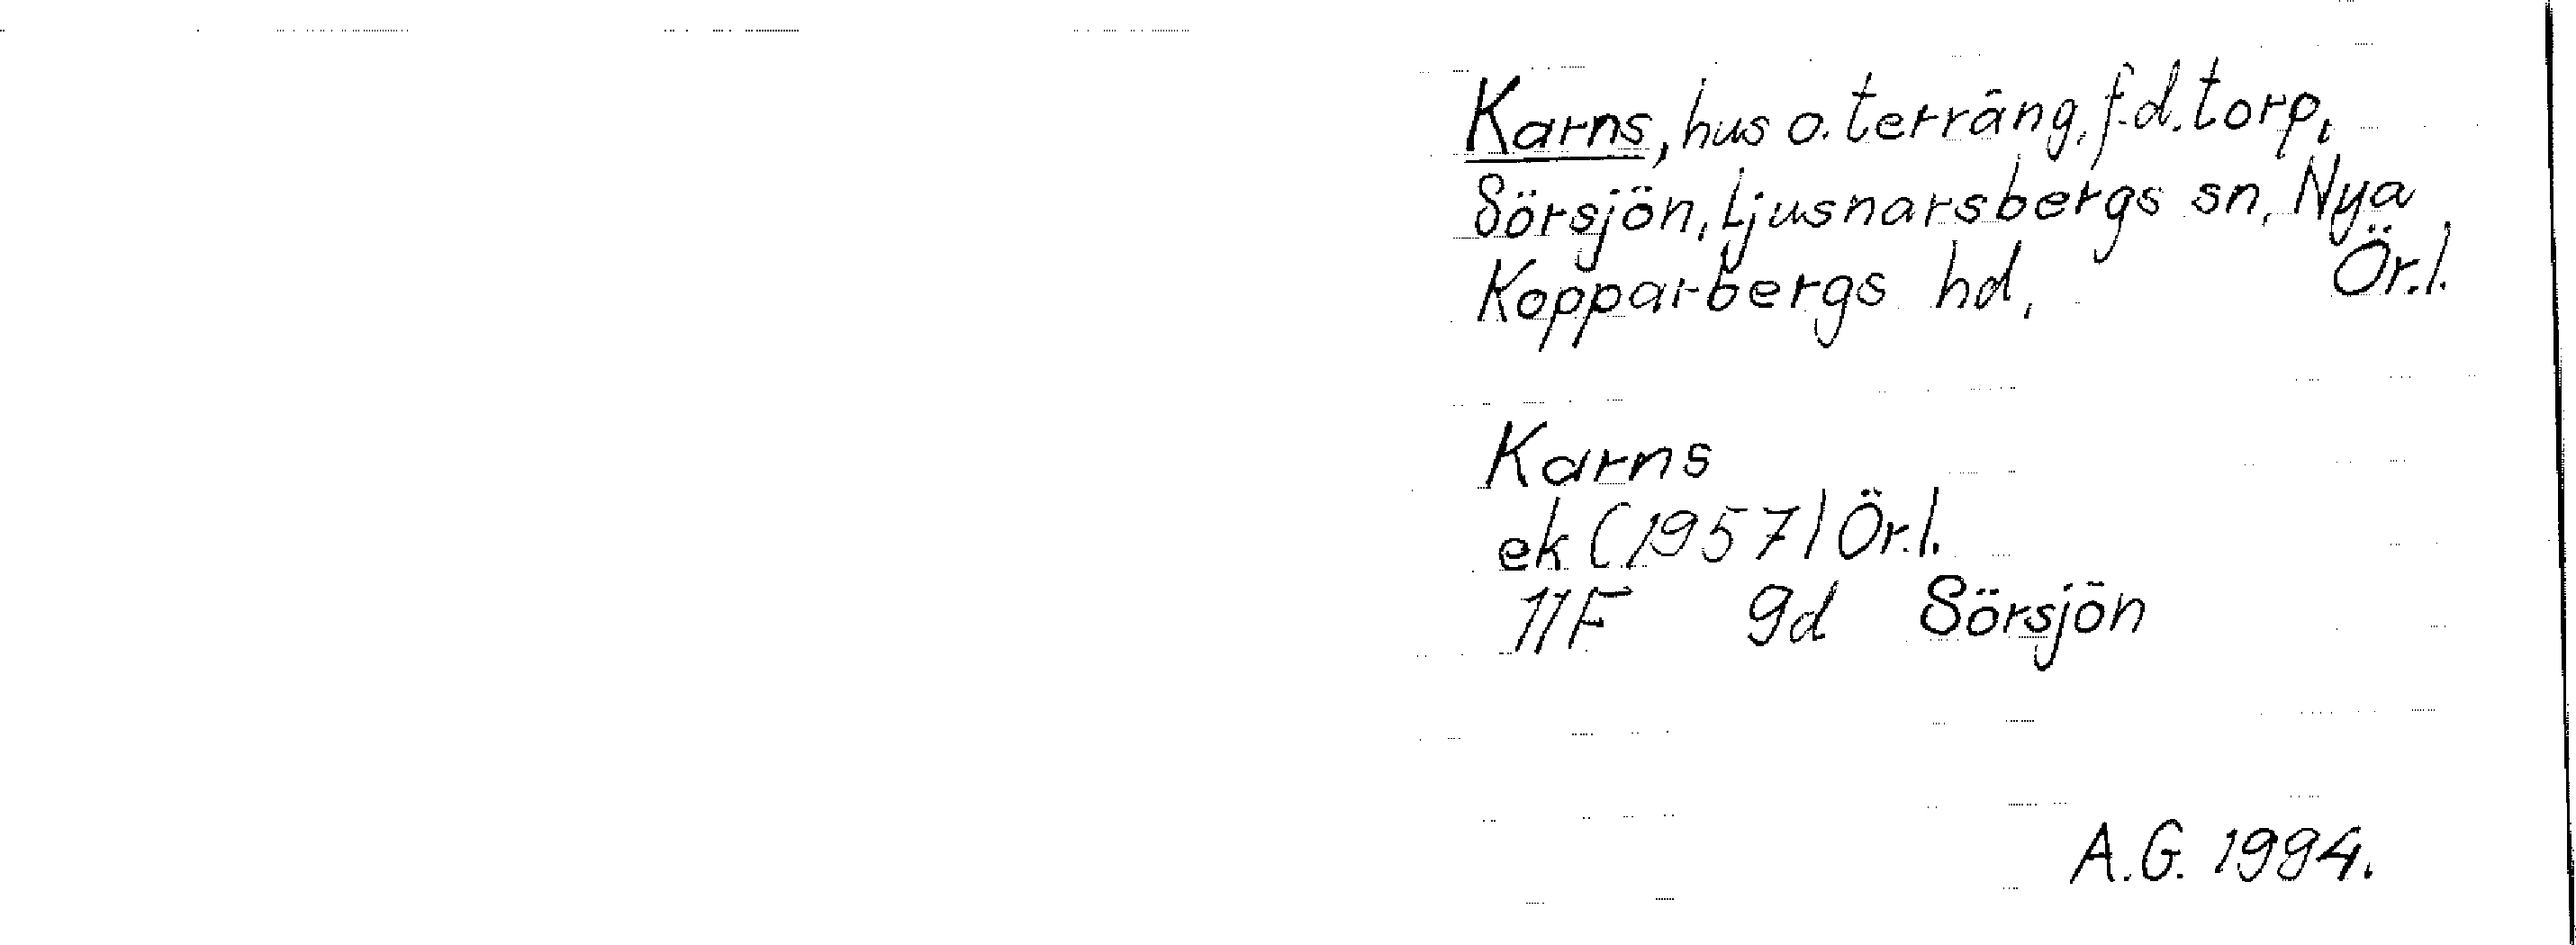 Karns, hus o. terräng, f.d. torp,
Sörsjön, Ljusnarsbergs sn, Nya
Kopparbergs hd, Ör.l.
Karns
ek (1957) Ör.l.
11F 9d Sörsjön
A.G. 1994.